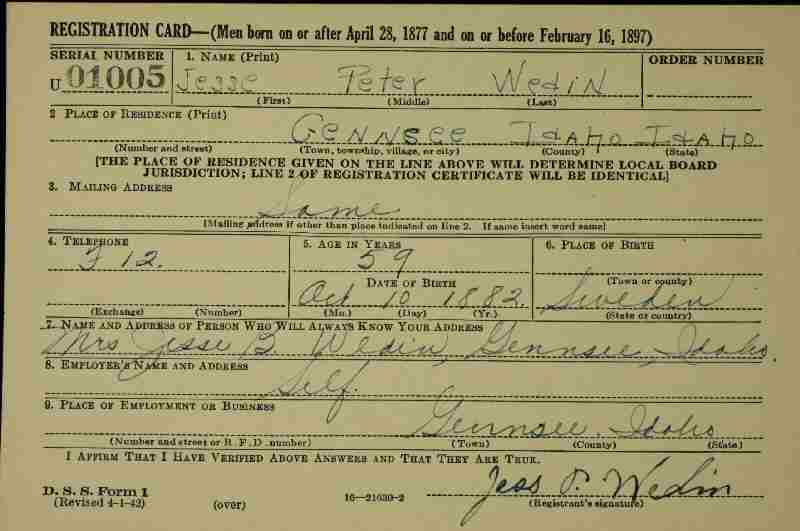 REGISTRATION CARD—(Men born on or after April 28, 1877 and on or before February 16, 1897)
SERIAL NUMBER 1. NAME (Print) ORDER NUMBER
U 01005 Jesse Peter Wedin
(First) (Middle) (Last)
2 PLACE OF RESIDENCE (Print)
Gennsee Idaho Idaho
(Number and street) (Town, township, village, or city) (County) (State)
[THE PLACE OF RESIDENCE GIVEN ON THE LINE ABOVE WILL DETERMINE LOCAL BOARD
JURISDICTION; LINE 2 OF REGISTRATION CERTIFICATE WILL BE IDENTICAL]
3. MAILING ADDRESS
Same
[Mailing address if other than place indicated on line 2. If same insert word same]
4. TELEPHONE 5. AGE IN YEARS 6. PLACE OF BIRTH
F 12. 59
DATE OF BIRTH (Town or county)
Oct 10 1882. Sweden
(Exchange) (Number) (Mo.) (Day) (Yr.) (State or country)
7. NAME AND ADDRESS OF PERSON WHO WILL ALWAYS KNOW YOUR ADDRESS
Mrs Jesse B. Wedin, Gennsee, Idaho.
8. EMPLOYER'S NAME AND ADDRESS
Self.
9. PLACE OF EMPLOYMENT OR BUSINESS
Gennsee, Idaho
(Number and street or R. F. D. number) (Town) (County) (State)
I AFFIRM THAT I HAVE VERIFIED ABOVE ANSWERS AND THAT THEY ARE TRUE.
Jess P. Wedin
D. S. S. Form 1
(Revised 4-1-42) (over) 16—21630-2 (Registrant's signature)